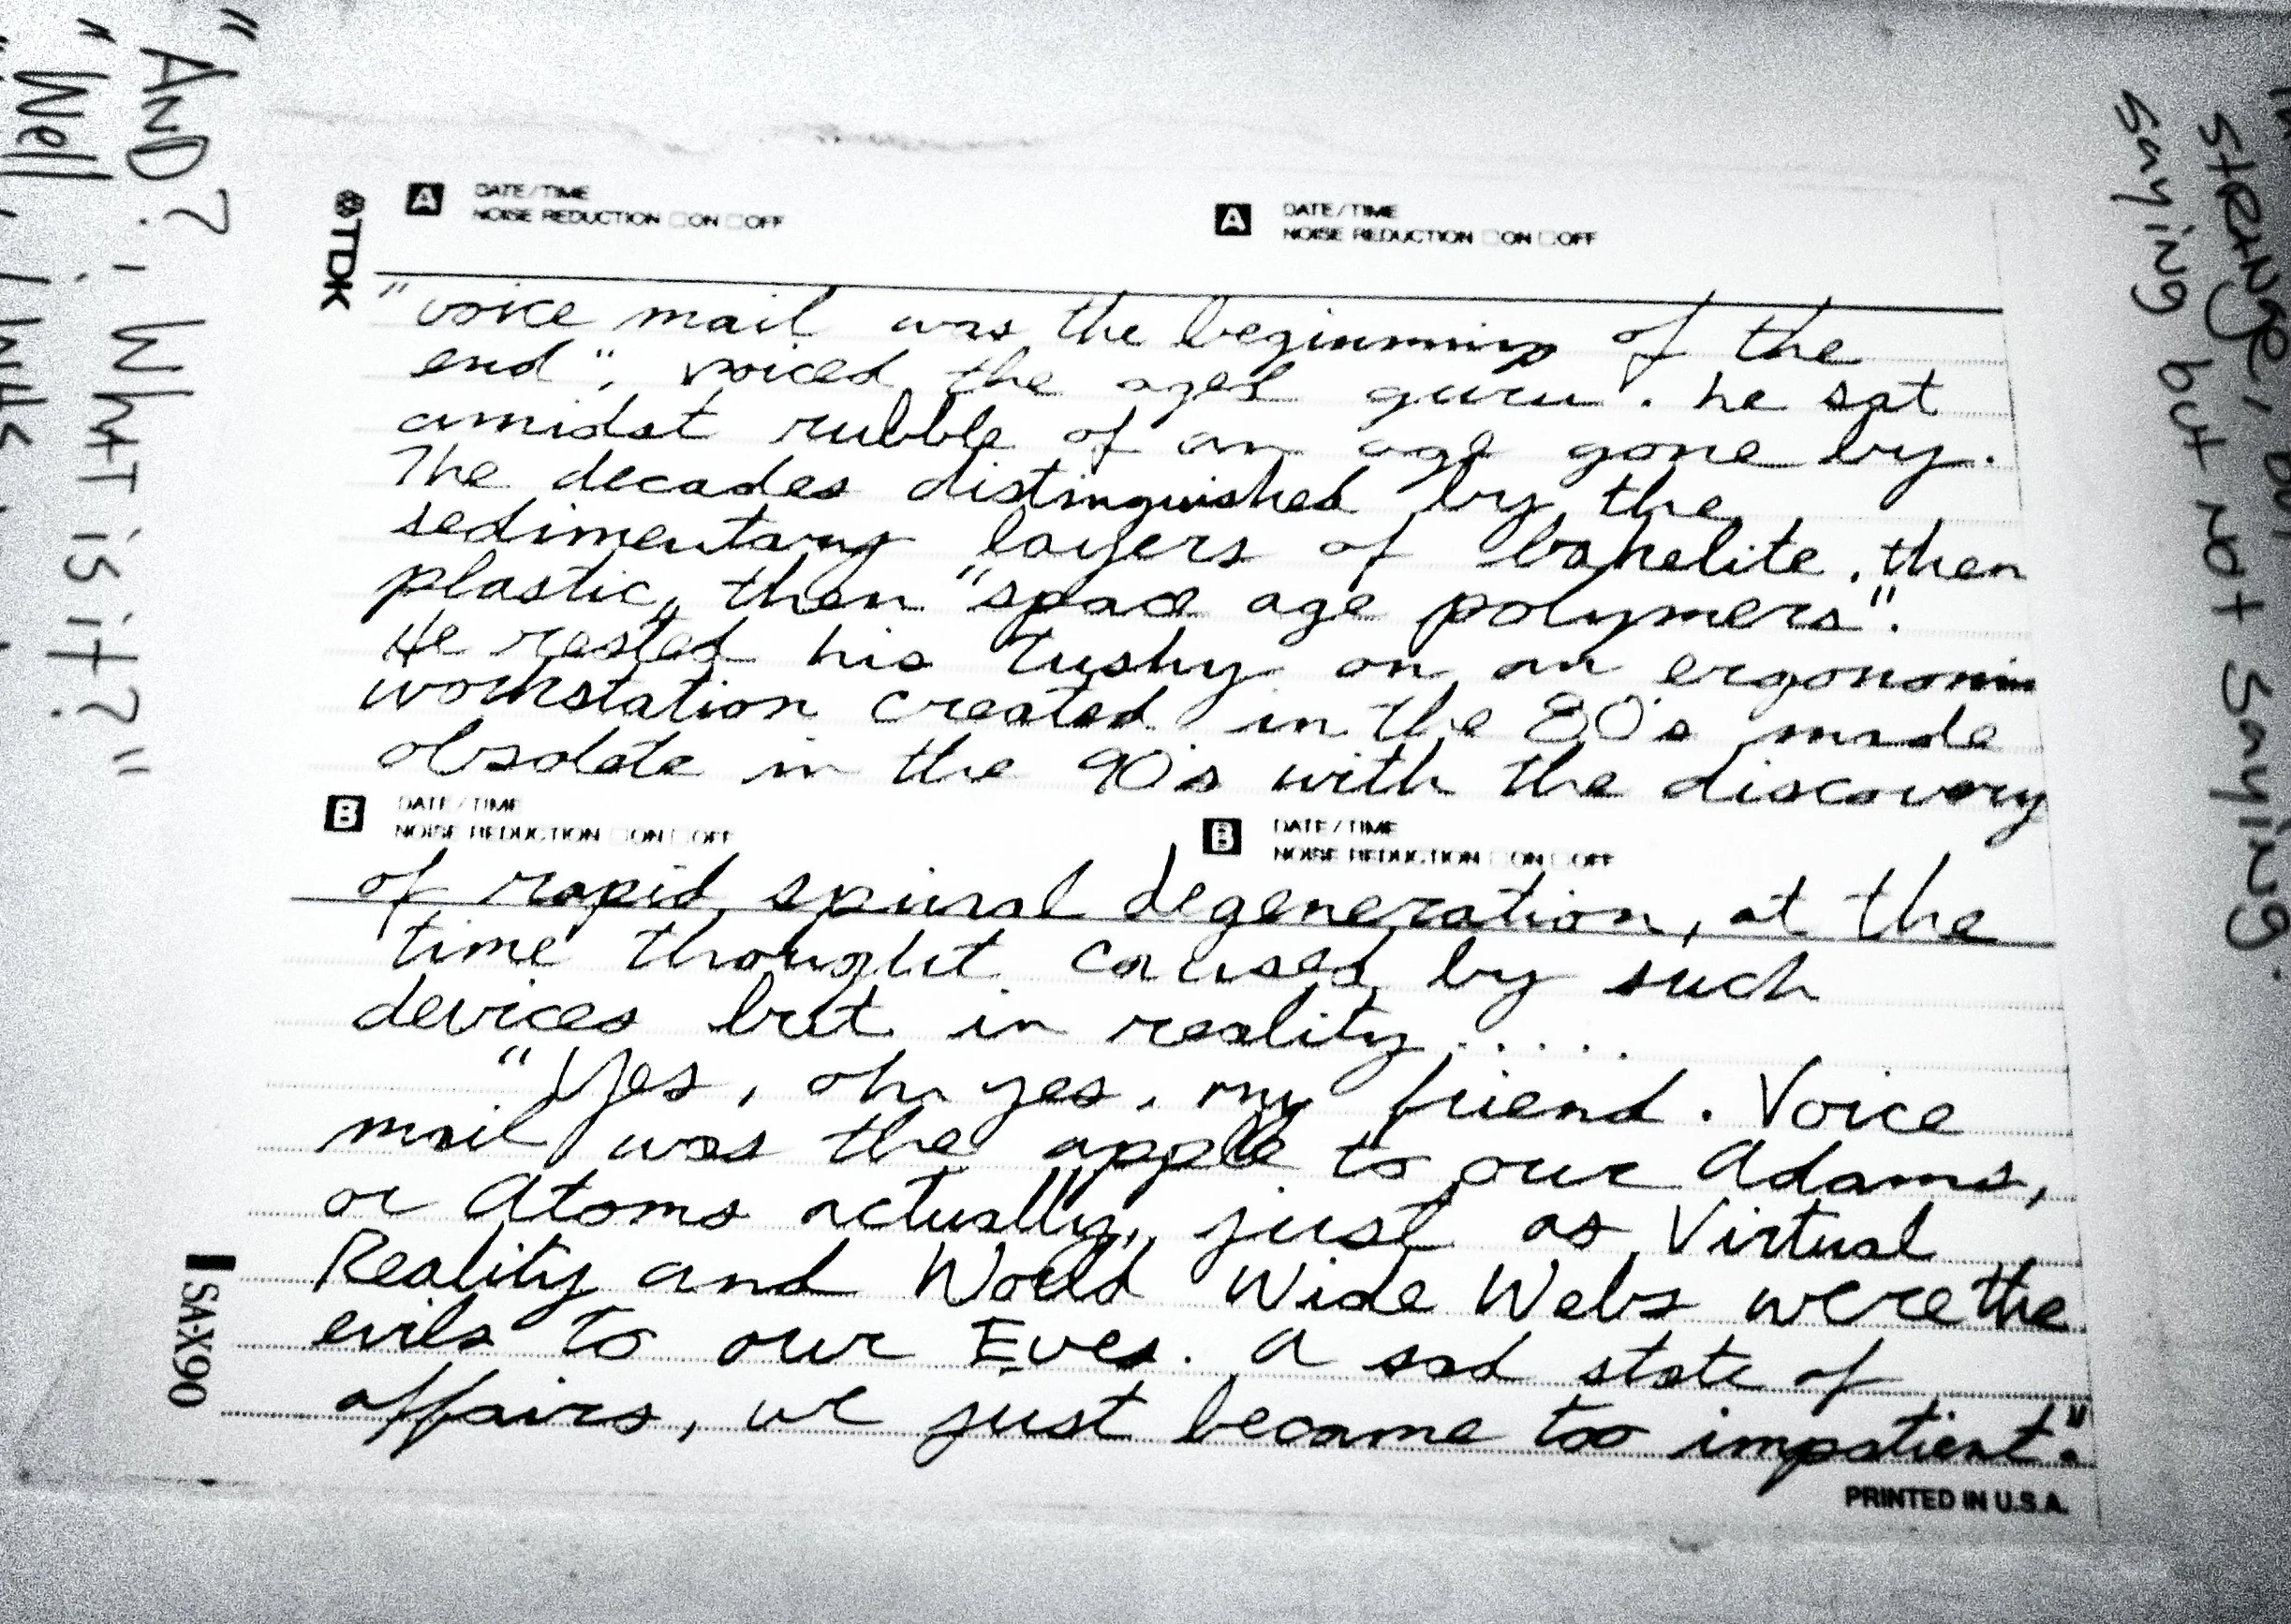 "AND? ¡ WhAT is it?"
"Well,
TDK
A DATE/TIME
NOISE REDUCTION □ON □OFF
A DATE/TIME
NOISE REDUCTION □ON □OFF
"voice mail was the beginning of the
end", voiced the aged guru. he sat
amidst rubble of an age gone by.
The decades distinguished by the
sedimentary layers of bakelite, then
plastic, then "space age polymers".
He rested his tushy on an ergonomic
workstation created in the 80's made
obsolete in the 90's with the discovery
B DATE/TIME
NOISE REDUCTION □ON □OFF
B DATE/TIME
NOISE REDUCTION □ON □OFF
of rapid spinal degeneration, at the
time thought caused by such
devices but in reality.....
"Yes, oh yes, my friend. Voice
mail was the apple to our Adams,
or Atoms actually, just as Virtual
Reality and World Wide Webs were the
evils to our Eves. A sad state of
affairs, we just became too impatient."
SA-X90
PRINTED IN U.S.A.
strange,
saying but not saying.